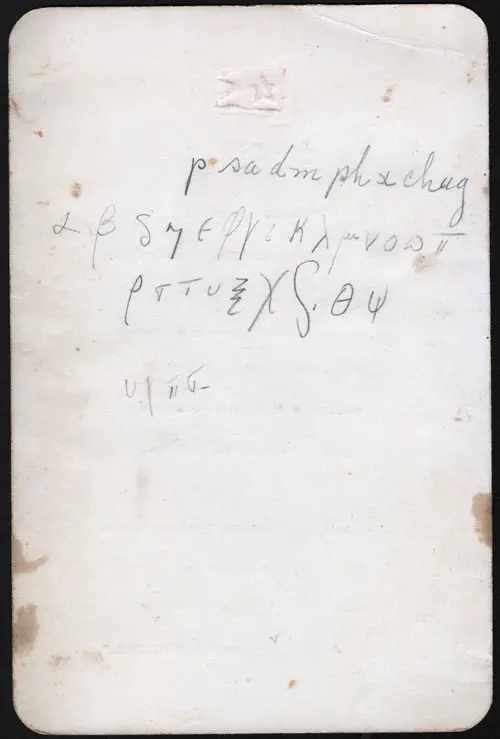 p sadm ph x chag
α β δ η ε φ γ ι κ λ μ ν ο ω π
ρ σ τ υ ξ χ ζ. θ ψ